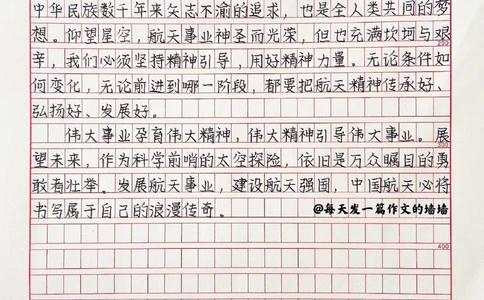 中华民族数千年来矢志不渝的追求，也是全人类共同的梦
想。仰望星空，航天事业神圣而光荣，但也充满坎坷与艰
200
辛，我们必须坚持精神引导，用好精神力量。无论条件如
何变化，无论前进到哪一阶段，都要把航天精神传承好、
弘扬好、发展好。
伟大事业孕育伟大精神，伟大精神引导伟大事业。展
300
望未来，作为科学前哨的太空探险，依旧是万众瞩目的勇
敢者壮举。发展航天事业，建设航天强国，中国航天必将
书写属于自己的浪漫传奇。
@每天发一篇作文的墙墙
400